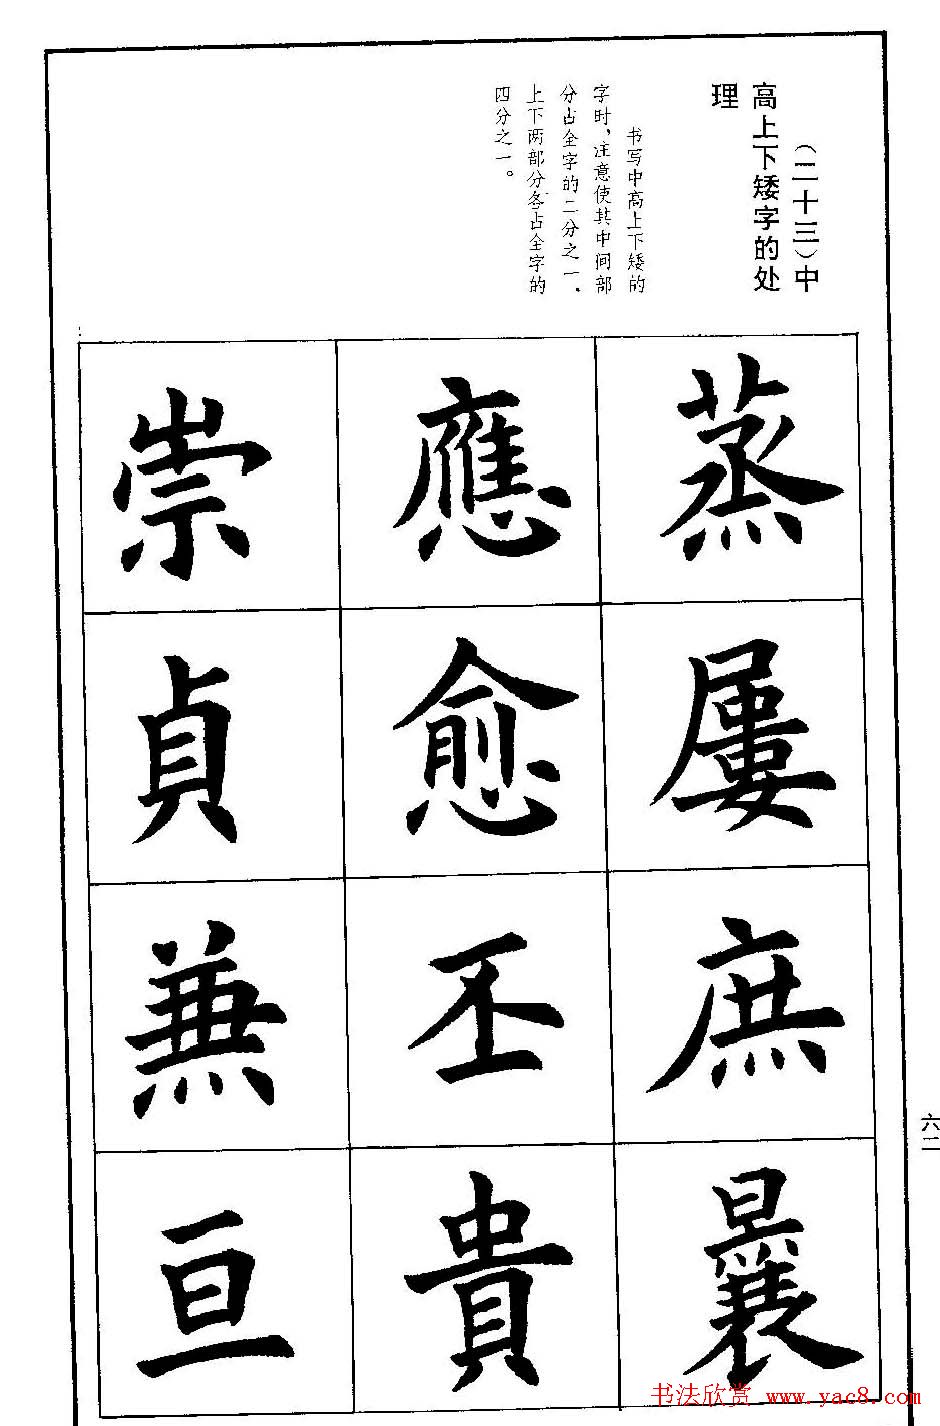 （二十三）中
高上下矮字的处
理
书写中高上下矮的
字时，注意使其中间部
分占全字的二分之一，
上下两部分各占全字的
四分之一。
蒸
屢
庶
曩
應
愈
丕
貴
崇
貞
兼
亘
六二
书法欣赏 www.yac8.com